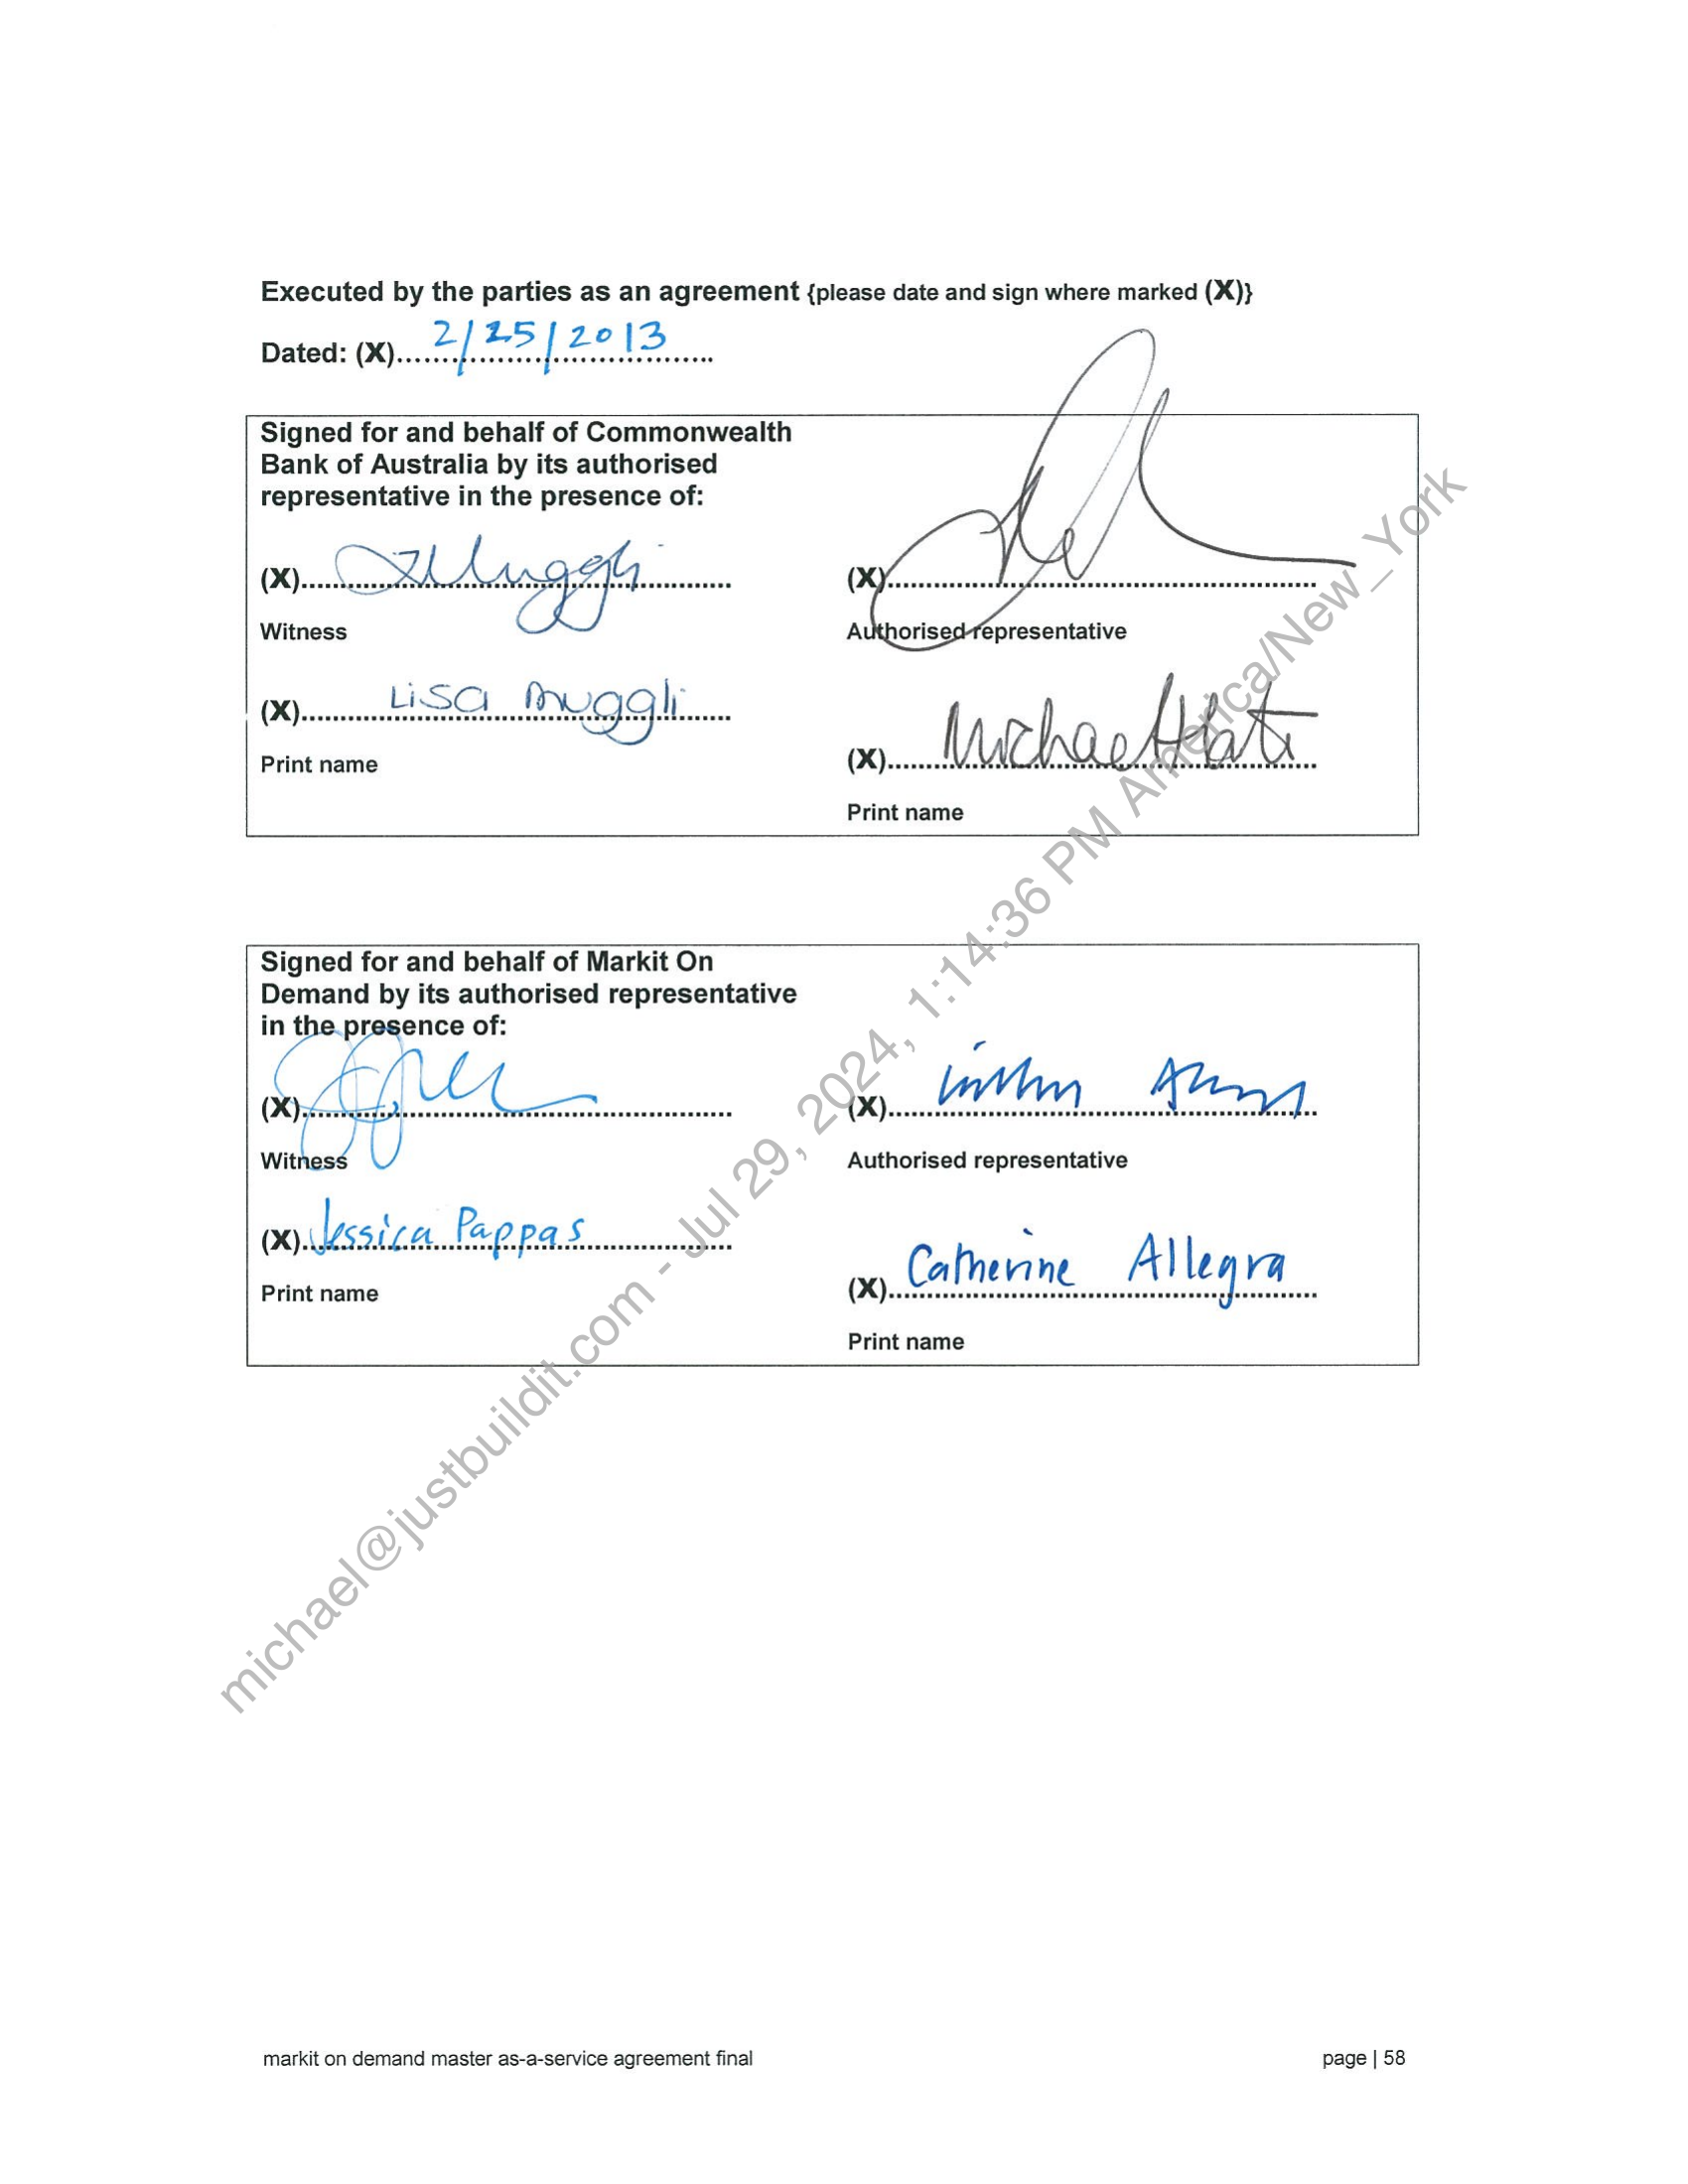 Executed by the parties as an agreement {please date and sign where marked (X)}
Dated: (X)..... 2/25/2013 .....
Signed for and behalf of Commonwealth
Bank of Australia by its authorised
representative in the presence of:
(X)..... (X).....
Witness Authorised representative
(X)..... Lisa Muggli .....
Print name
(X)..... Michael .....
Print name
Signed for and behalf of Markit On
Demand by its authorised representative
in the presence of:
(X)..... (X).....
Witness Authorised representative
(X)..... Jessica Pappas .....
Print name
(X)..... Catherine Allegra .....
Print name
michael@justbuildit.com - Jul 29, 2024, 1:14:36 PM America/New_York
markit on demand master as-a-service agreement final page | 58